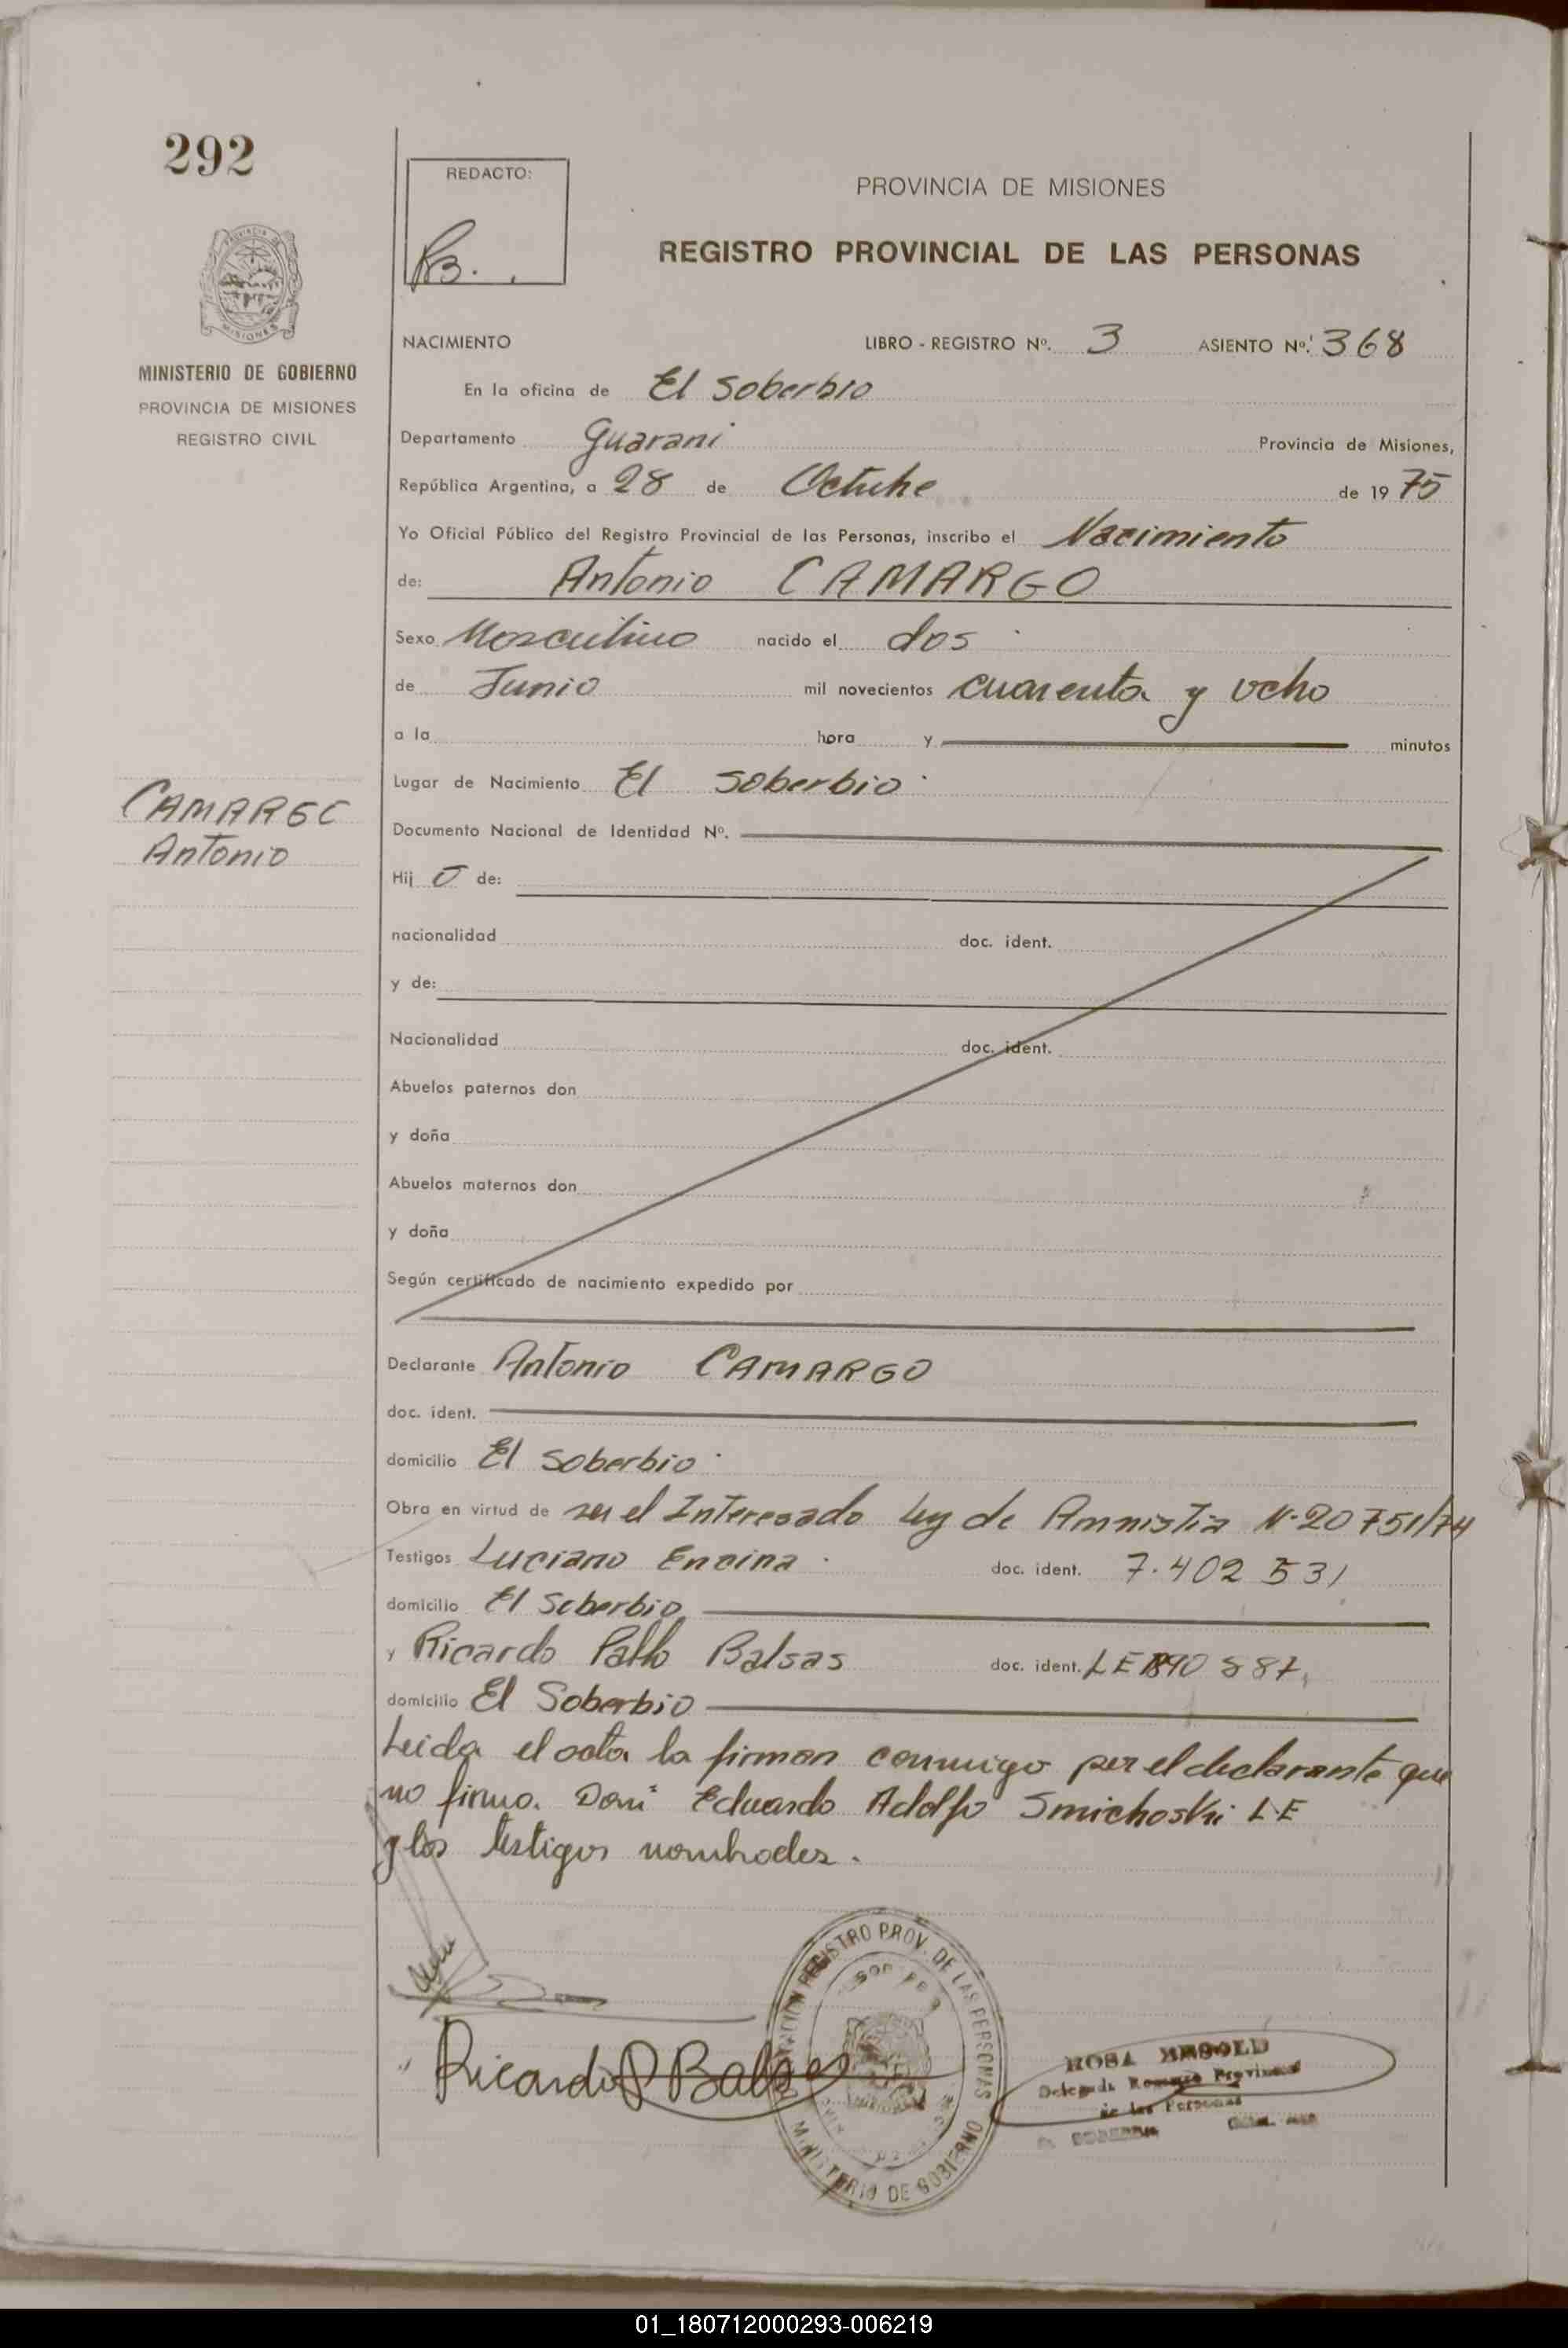 292
REDACTO:
PB.
PROVINCIA DE MISIONES
REGISTRO PROVINCIAL DE LAS PERSONAS
PROVINCIA DE
MISIONES
MINISTERIO DE GOBIERNO
PROVINCIA DE MISIONES
REGISTRO CIVIL
NACIMIENTO LIBRO - REGISTRO Nº. 3 ASIENTO Nº. 368
En la oficina de El Soberbio
Departamento Guarani Provincia de Misiones,
República Argentina, a 28 de Octubre de 1975
Yo Oficial Público del Registro Provincial de las Personas, inscribo el Nacimiento
de: Antonio CAMARGO
Sexo Masculino nacido el dos
de Junio mil novecientos cuarenta y ocho
a la hora y minutos
Lugar de Nacimiento El Soberbio
CAMARGO
Antonio
Documento Nacional de Identidad Nº.
Hij o de:
nacionalidad doc. ident.
y de:
Nacionalidad doc. ident.
Abuelos paternos don
y doña
Abuelos maternos don
y doña
Según certificado de nacimiento expedido por
Declarante Antonio CAMARGO
doc. ident.
domicilio El Soberbio
Obra en virtud de ser el Interesado Ley de Amnistia N-20751/74
Testigos Luciano Encina doc. ident. 7.402 531
domicilio El Soberbio
y Ricardo Pablo Balsas doc. ident. LE
domicilio El Soberbio
Leida el acta la firman conmigo por el declarante que
no firma. Don Eduardo Adolfo Smichoski LE
y los testigos nombrados.
Ricardo P Balsas
REGISTRO PROV. DE LAS PERSONAS
MINISTERIO DE GOBIERNO
ROSA
Delegada Provincial
de las Personas
01_180712000293-006219